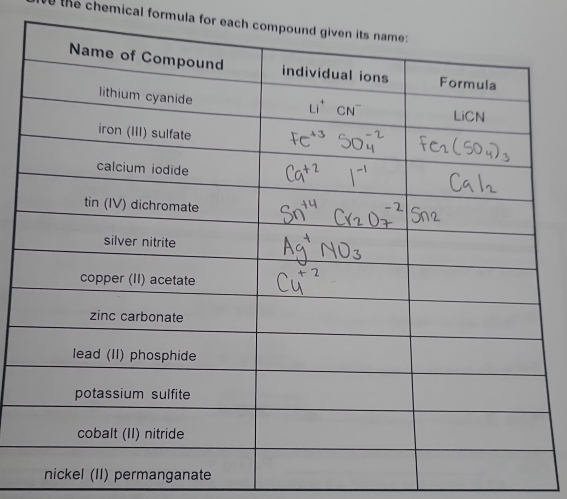 Give the chemical formula for each compound given its name:
Name of Compound individual ions Formula
lithium cyanide Li⁺ CN⁻ LiCN
iron (III) sulfate Fe⁺³ SO₄⁻² Fe₂(SO₄)₃
calcium iodide Ca⁺² I⁻¹ CaI₂
tin (IV) dichromate Sn⁺⁴ Cr₂O₇⁻² Sn₂
silver nitrite Ag⁺ NO₃
copper (II) acetate Cu⁺²
zinc carbonate
lead (II) phosphide
potassium sulfite
cobalt (II) nitride
nickel (II) permanganate